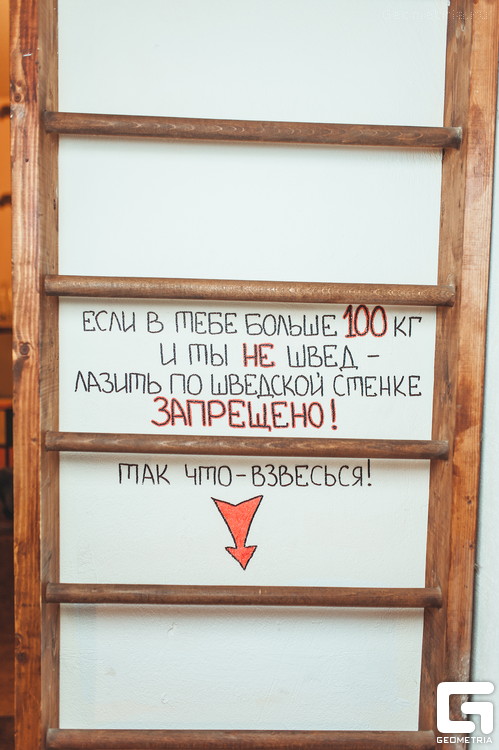 ЕСЛИ В ТЕБЕ БОЛЬШЕ 100 КГ
И ТЫ НЕ ШВЕД -
ЛАЗИТЬ ПО ШВЕДСКОЙ СТЕНКЕ
ЗАПРЕЩЕНО!
ТАК ЧТО-ВЗВЕСЬСЯ!
GEOMETRIA